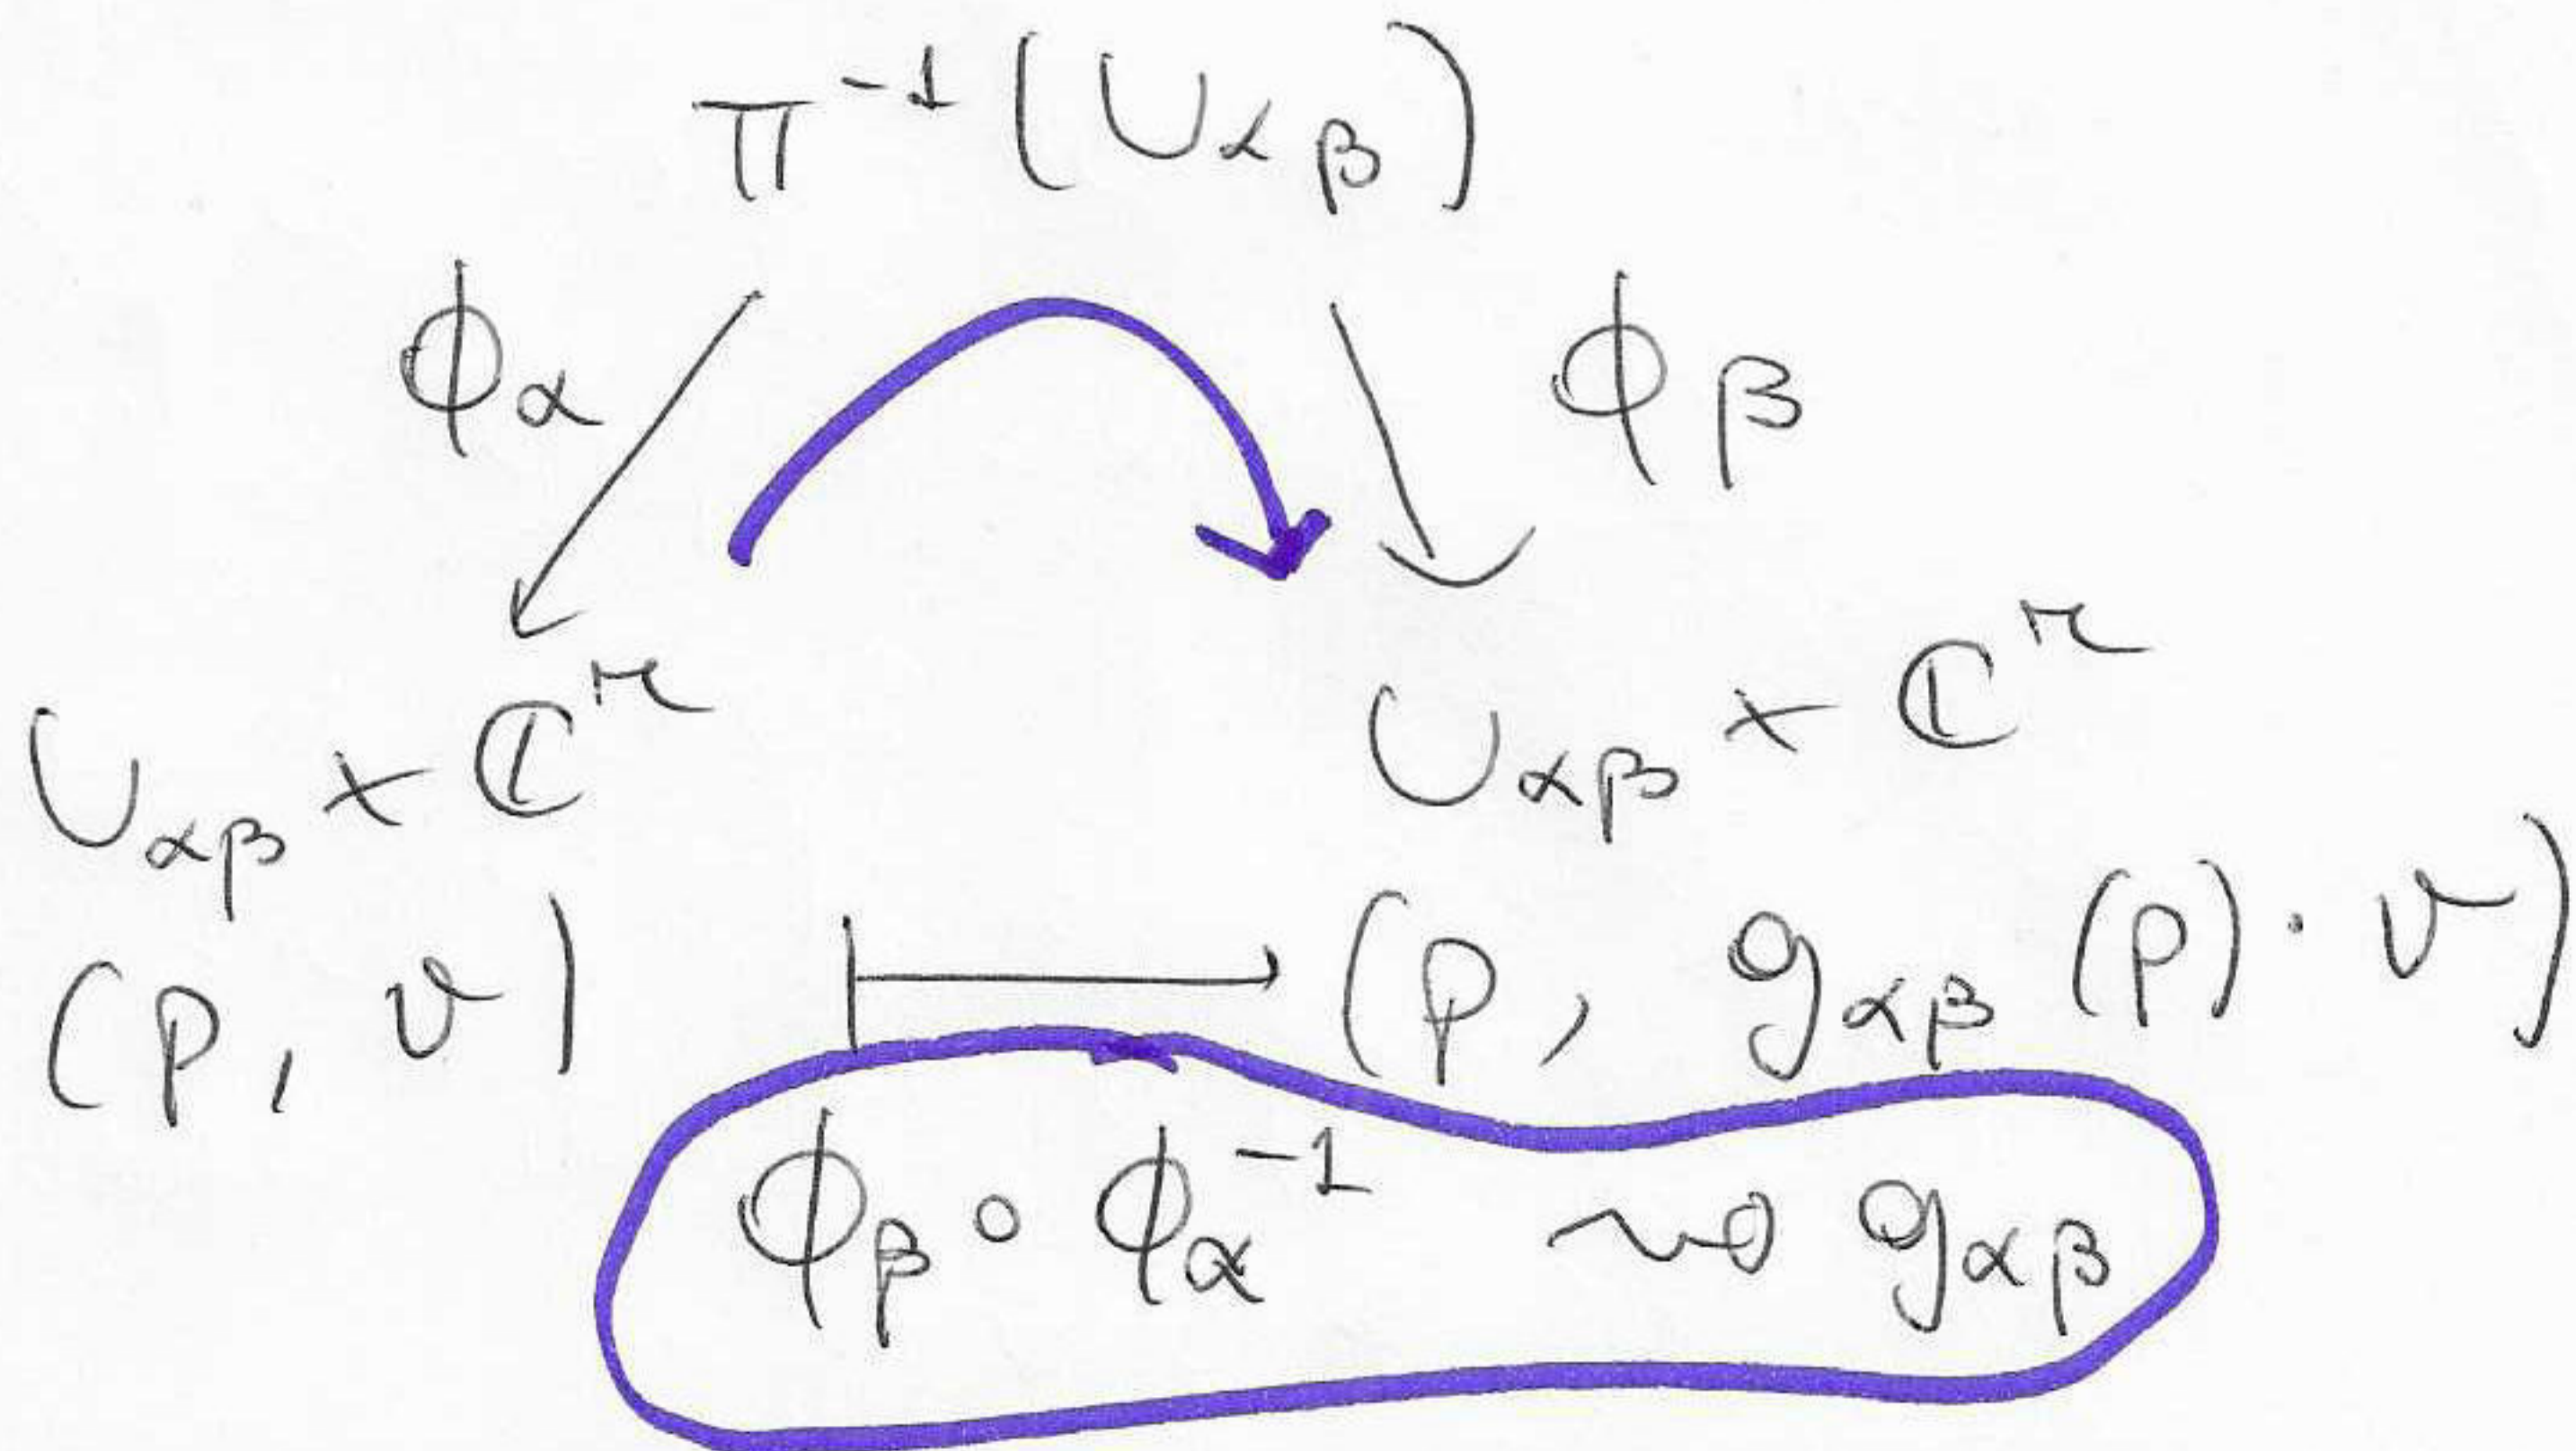 π⁻¹(U_αβ)
ϕ_α ϕ_β
U_αβ × ℂʳ U_αβ × ℂʳ
(p, v) ⟼ (p, g_αβ(p)·v)
ϕ_β ∘ ϕ_α⁻¹ ⇝ g_αβ